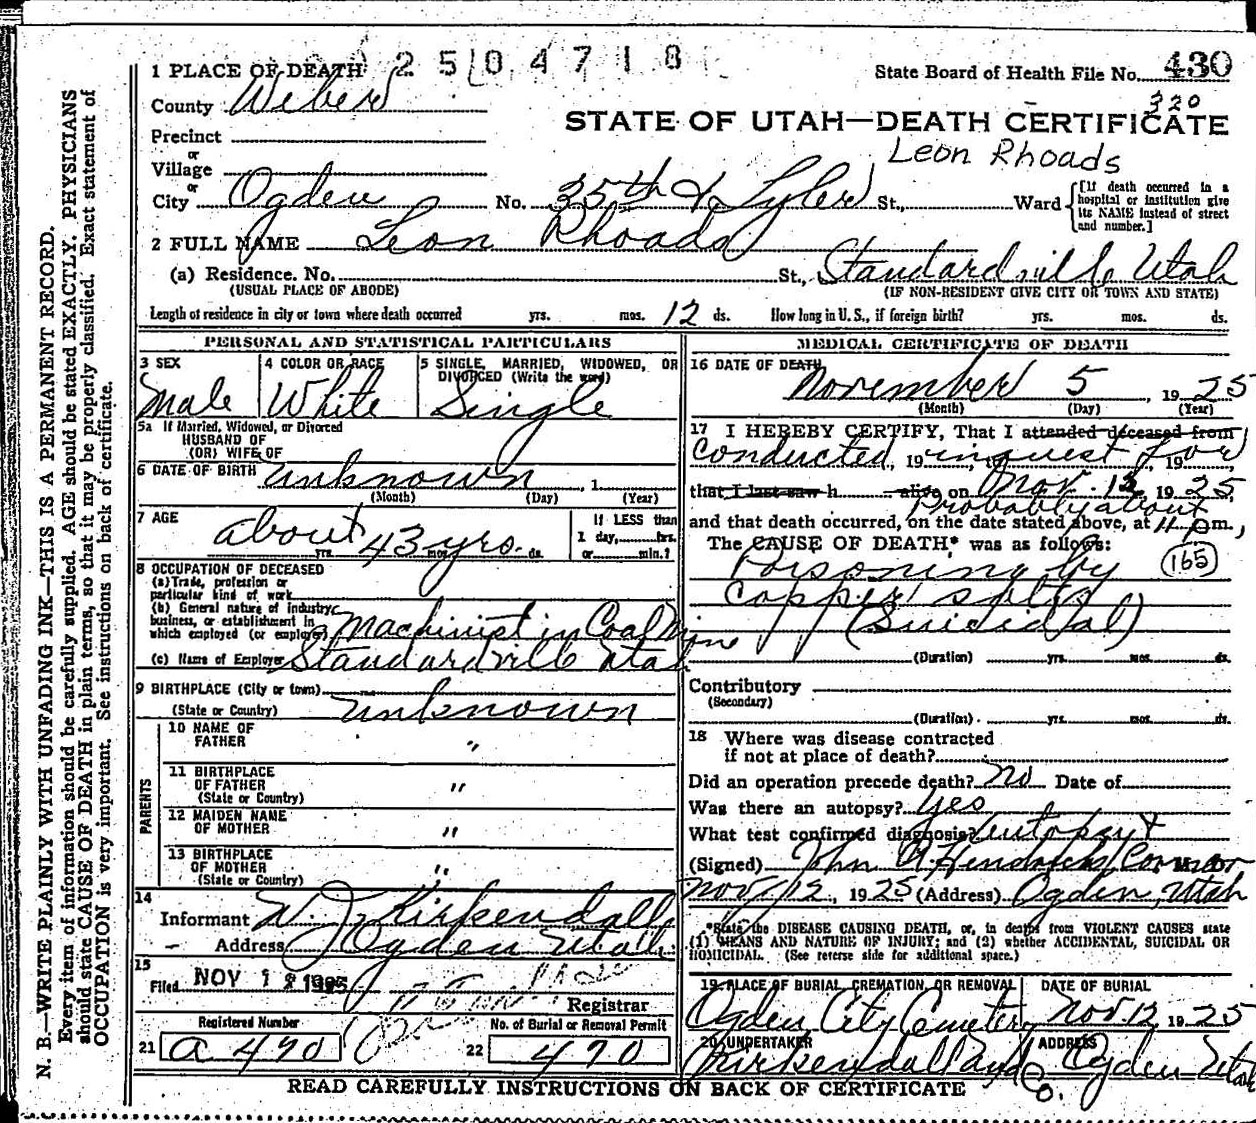 2 5 0 4 7 1 8
1 PLACE OF DEATH
State Board of Health File No. 430
County Weber
320
STATE OF UTAH—DEATH CERTIFICATE
Precinct
Leon Rhoads
or
Village
or
City Ogden No. 35th & Tyler St., Ward
[If death occurred in a hospital or institution give its NAME instead of street and number.]
2 FULL NAME Leon Rhoads
(a) Residence. No. St., Standardville Utah
(USUAL PLACE OF ABODE) (IF NON-RESIDENT GIVE CITY OR TOWN AND STATE)
Length of residence in city or town where death occurred yrs. mos. 12 ds. How long in U. S., if foreign birth? yrs. mos. ds.
PERSONAL AND STATISTICAL PARTICULARS
3 SEX
Male
4 COLOR OR RACE
White
5 SINGLE, MARRIED, WIDOWED, OR
DIVORCED (Write the word)
Single
5a If Married, Widowed, or Divorced
HUSBAND OF
(OR) WIFE OF
6 DATE OF BIRTH unknown , 1
(Month) (Day) (Year)
7 AGE
about 43 yrs.
yrs. mos. ds.
If LESS than
1 day, hrs.
or min.?
8 OCCUPATION OF DECEASED
(a) Trade, profession or
particular kind of work
(b) General nature of industry,
business, or establishment in
which employed (or employer) Machinist in Coal Mine
(c) Name of Employer Standardville Utah
9 BIRTHPLACE (City or town)
(State or Country) unknown
PARENTS
10 NAME OF
FATHER "
11 BIRTHPLACE
OF FATHER "
(State or Country)
12 MAIDEN NAME
OF MOTHER "
13 BIRTHPLACE
OF MOTHER "
(State or Country)
14
Informant W. J. Kirkendall
Address Ogden Utah.
15
Filed NOV 12 1925
Registrar
Registered Number
21 a 490
No. of Burial or Removal Permit
22 490
MEDICAL CERTIFICATE OF DEATH
16 DATE OF DEATH
November 5, 1925
(Month) (Day) (Year)
17 I HEREBY CERTIFY, That I attended deceased from
Conducted, 19 inquest for 19
that I last saw h alive on Nov. 12 1925
Probably about
and that death occurred, on the date stated above, at 4 p m.,
The CAUSE OF DEATH* was as follows:
Poisoning by (165)
Copper salts
(Suicidal)
(Duration) yrs. mos. ds.
Contributory
(Secondary)
(Duration) yrs. mos. ds.
18 Where was disease contracted
if not at place of death?
Did an operation precede death? No Date of
Was there an autopsy? Yes
What test confirmed diagnosis? Autopsy +
(Signed) John A Hendricks Coroner M. D.
Nov 12, 1925 (Address) Ogden, Utah
*State the DISEASE CAUSING DEATH, or, in deaths from VIOLENT CAUSES state
(1) MEANS AND NATURE OF INJURY; and (2) whether ACCIDENTAL, SUICIDAL OR
HOMICIDAL. (See reverse side for additional space.)
19 PLACE OF BURIAL, CREMATION, OR REMOVAL
Ogden City Cemetery
DATE OF BURIAL
Nov. 12, 1925
20 UNDERTAKER
Kirkendall and Co.
ADDRESS
Ogden Utah
READ CAREFULLY INSTRUCTIONS ON BACK OF CERTIFICATE
N. B.—WRITE PLAINLY WITH UNFADING INK—THIS IS A PERMANENT RECORD.
Every item of information should be carefully supplied. AGE should be stated EXACTLY. PHYSICIANS
should state CAUSE OF DEATH in plain terms, so that it may be properly classified. Exact statement of
OCCUPATION is very important. See instructions on back of certificate.